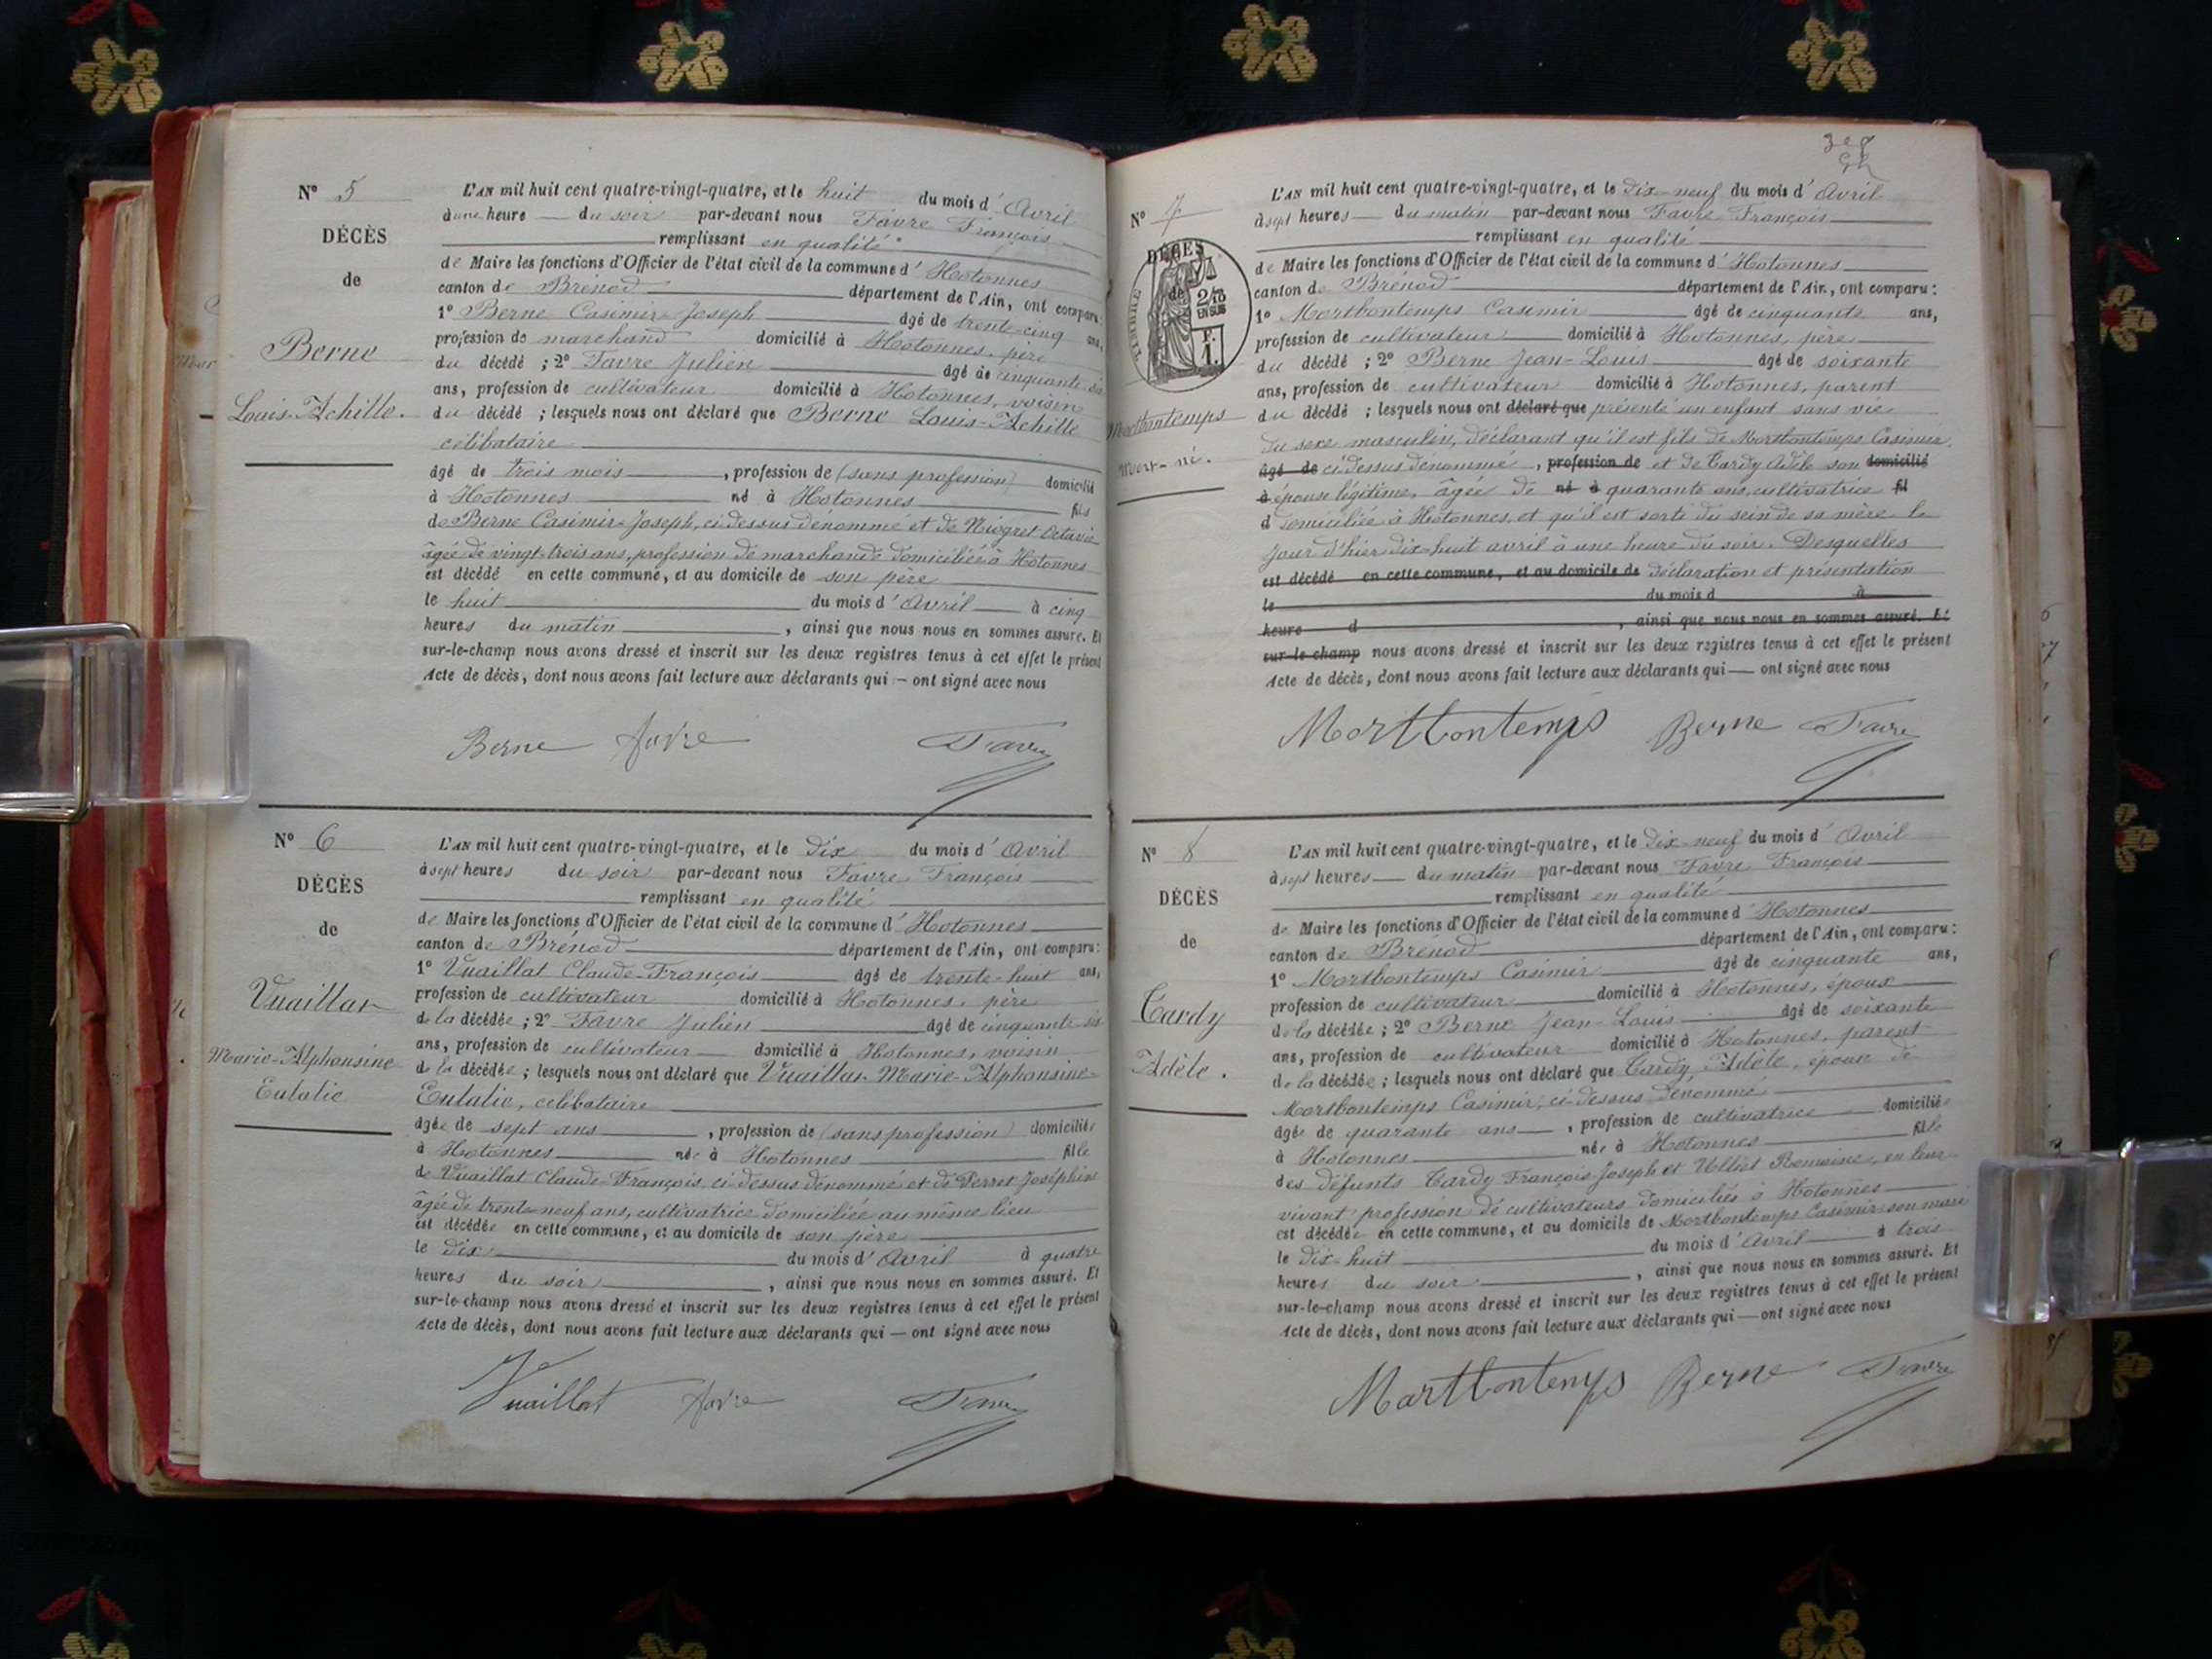 N° 5
DÉCÈS
de
Berne
Louis-Achille.
L'AN mil huit cent quatre-vingt-quatre, et le huit du mois d'Avril
à une heure du soir par-devant nous Favre François
remplissant en qualité
de Maire les fonctions d'Officier de l'état civil de la commune d'Hotonnes
canton de Brénod département de l'Ain, ont comparu:
1° Berne Casimir-Joseph âgé de trente-cinq ans,
profession de marchand domicilié à Hotonnes, père
du décédé ; 2° Favre Julien âgé de cinquante-six
ans, profession de cultivateur domicilié à Hotonnes, voisin
du décédé ; lesquels nous ont déclaré que Berne Louis-Achille
célibataire
âgé de trois mois, profession de (sans profession) domicilié
à Hotonnes né à Hotonnes fils
de Berne Casimir-Joseph, ci-dessus dénommé et de Niogret Octavie
âgée de vingt-trois ans, profession de marchande domiciliée à Hotonnes
est décédé en cette commune, et au domicile de son père
le huit du mois d'Avril à cinq
heures du matin, ainsi que nous nous en sommes assuré. Et
sur-le-champ nous avons dressé et inscrit sur les deux registres tenus à cet effet le présent
Acte de décès, dont nous avons fait lecture aux déclarants qui — ont signé avec nous
Berne Favre Favre
N° 6
DÉCÈS
de
Vuaillat
Marie-Alphonsine
Eulalie
L'AN mil huit cent quatre-vingt-quatre, et le dix du mois d'Avril
à sept heures du soir par-devant nous Favre François
remplissant en qualité
de Maire les fonctions d'Officier de l'état civil de la commune d'Hotonnes
canton de Brénod département de l'Ain, ont comparu:
1° Vuaillat Claude-François âgé de trente-huit ans,
profession de cultivateur domicilié à Hotonnes, père
de la décédée ; 2° Favre Julien âgé de cinquante-six
ans, profession de cultivateur domicilié à Hotonnes, voisin
de la décédée ; lesquels nous ont déclaré que Vuaillat Marie-Alphonsine-
Eulalie, célibataire
âgée de sept ans, profession de (sans profession) domiciliée
à Hotonnes née à Hotonnes fille
de Vuaillat Claude-François ci-dessus dénommé et de Perret Joséphine
âgée de trente-neuf ans, cultivatrice domiciliée au même lieu
est décédée en cette commune, et au domicile de son père
le dix du mois d'Avril à quatre
heures du soir, ainsi que nous nous en sommes assuré. Et
sur-le-champ nous avons dressé et inscrit sur les deux registres tenus à cet effet le présent
Acte de décès, dont nous avons fait lecture aux déclarants qui — ont signé avec nous
Vuaillat Favre Favre
N° 7
DÉCÈS
de
TIMBRE
2/10
EN SUS
F.
1.
Mortbontemps
Mort-né.
L'AN mil huit cent quatre-vingt-quatre, et le dix-neuf du mois d'Avril
à sept heures du matin par-devant nous Favre François
remplissant en qualité
de Maire les fonctions d'Officier de l'état civil de la commune d'Hotonnes
canton de Brénod département de l'Ain, ont comparu:
1° Mortbontemps Casimir âgé de cinquante ans,
profession de cultivateur domicilié à Hotonnes, père
du décédé ; 2° Berne Jean-Louis âgé de soixante
ans, profession de cultivateur domicilié à Hotonnes, parent
du décédé ; lesquels nous ont déclaré que présenté un enfant sans vie
du sexe masculin, déclarant qu'il est fils de Mortbontemps Casimir
âgé de ci-dessus dénommé, profession de et de Cardy Adèle son domicilié
à épouse légitime, âgée de né à quarante ans, cultivatrice fil
d domiciliée à Hotonnes, et qu'il est sorti du sein de sa mère le
jour d'hier dix-huit avril à une heure du soir. Desquelles
est décédé en cette commune, et au domicile de déclaration et présentation
le du mois d à
heure d, ainsi que nous nous en sommes assuré. Et
sur-le-champ nous avons dressé et inscrit sur les deux registres tenus à cet effet le présent
Acte de décès, dont nous avons fait lecture aux déclarants qui — ont signé avec nous
Mortbontemps Berne Favre
N° 8
DÉCÈS
de
Cardy
Adèle.
L'AN mil huit cent quatre-vingt-quatre, et le dix-neuf du mois d'Avril
à sept heures du matin par-devant nous Favre François
remplissant en qualité
de Maire les fonctions d'Officier de l'état civil de la commune d'Hotonnes
canton de Brénod département de l'Ain, ont comparu:
1° Mortbontemps Casimir âgé de cinquante ans,
profession de cultivateur domicilié à Hotonnes, époux
de la décédée ; 2° Berne Jean-Louis âgé de soixante
ans, profession de cultivateur domicilié à Hotonnes, parent
de la décédée ; lesquels nous ont déclaré que Cardy Adèle, épouse de
Mortbontemps Casimir, ci-dessus dénommé
âgée de quarante ans, profession de cultivatrice domiciliée
à Hotonnes née à Hotonnes fille
des défunts Cardy François-Joseph et Ulliet Romaine, en leur
vivant profession de cultivateurs domiciliés à Hotonnes
est décédée en cette commune, et au domicile de Mortbontemps Casimir son mari
le dix-huit du mois d'Avril à trois
heures du soir, ainsi que nous nous en sommes assuré. Et
sur-le-champ nous avons dressé et inscrit sur les deux registres tenus à cet effet le présent
Acte de décès, dont nous avons fait lecture aux déclarants qui — ont signé avec nous
Mortbontemps Berne Favre